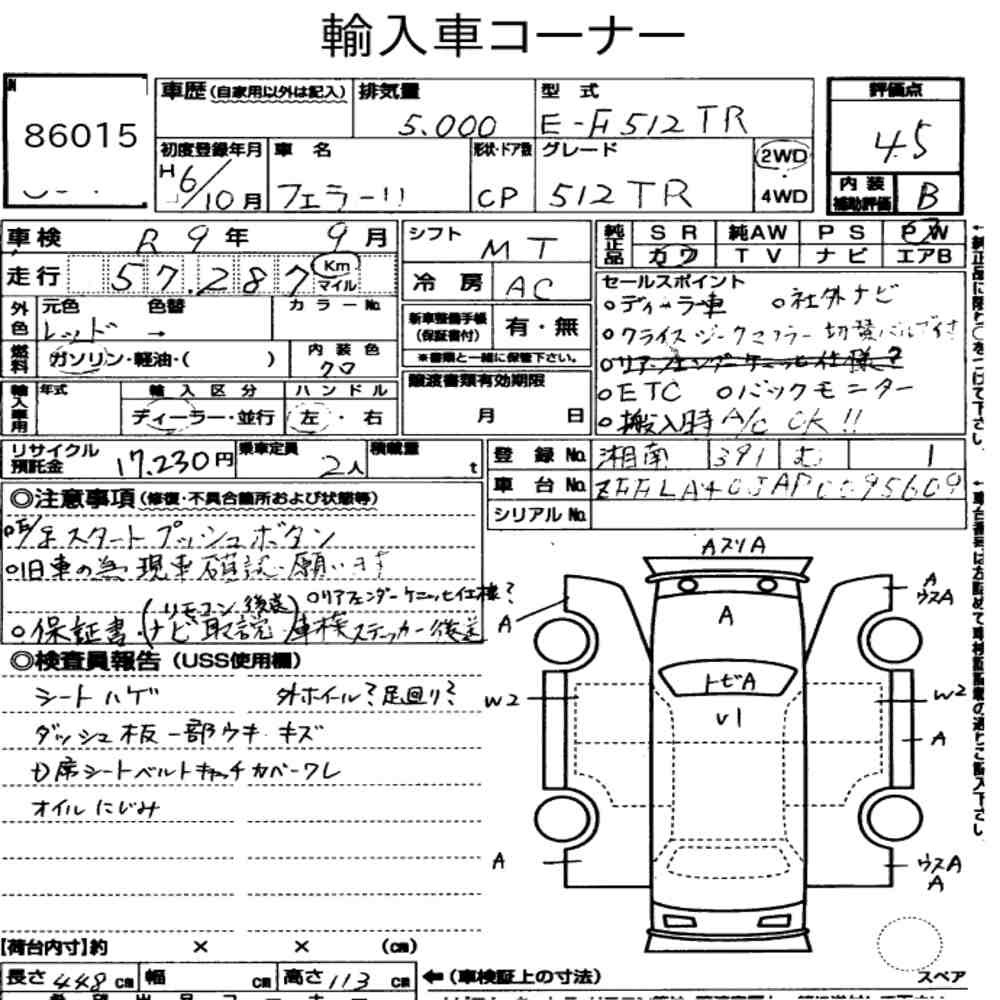 輸入車コーナー
86015
車歴 (自家用以外は記入) 排気量 5.000
型式 E-F512TR
評価点 4.5
内装補助評価 B
初度登録年月 H6/10月
車名 フェラーリ
形状・ドア数 CP
グレード 512TR
2WD
4WD
車検 R9年 9月
走行 57.287 Km マイル
シフト MT
冷房 AC
純正品 SR 純AW PS PW
カワ TV ナビ エアB
外色 元色 色替 カラーNo.
レッド →
燃料 ガソリン・軽油・( )
内装色 クロ
新車整備手帳(保証書付) 有・無
※書類と一緒に保管下さい。
セールスポイント
○ディーラー車 ○社外ナビ
○クライスジークマフラー 切替バルブ付
○リアフェンダーケーニッヒ仕様?
○ETC ○バックモニター
○搬入時 A/C OK!!
輸入車用 年式 輸入区分 ハンドル
ディーラー・並行 左・右
譲渡書類有効期限
月 日
リサイクル預託金 17.230円
乗車定員 2人
積載量 t
登録No. 湘南 391 む 1
車台No.
シリアルNo.
◎注意事項 (修復・不具合箇所および状態等)
スタート プッシュボタン
○旧車の為 現車確認願います
(リモコン後送) ○リアフェンダーケーニッヒ仕様?
○保証書・ナビ取説 車検ステッカー後送
◎検査員報告 (USS使用欄)
シートハゲ 外ホイール? 足回り?
ダッシュ板一部ウキ キズ
D席シートベルトキャッチカバーワレ
オイルにじみ
AスリA
A
A
ウスA
A
トビA
W2
V1
W2
A
A
ウスA
A
スペア
【荷台内寸】約 × × (cm)
長さ 448cm 幅 cm 高さ 113cm
←(車検証上の寸法)